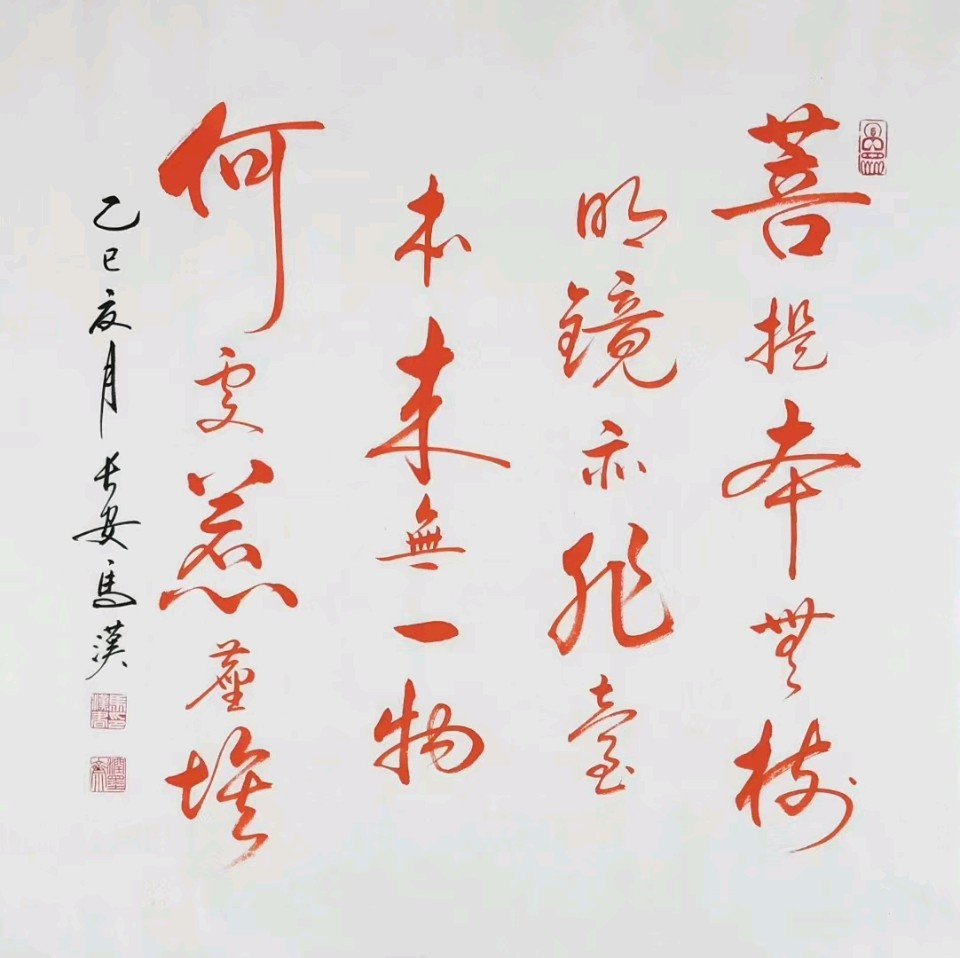 菩提本無樹
明鏡亦非臺
本来無一物
何處惹塵埃
乙巳夏月長安馬漢